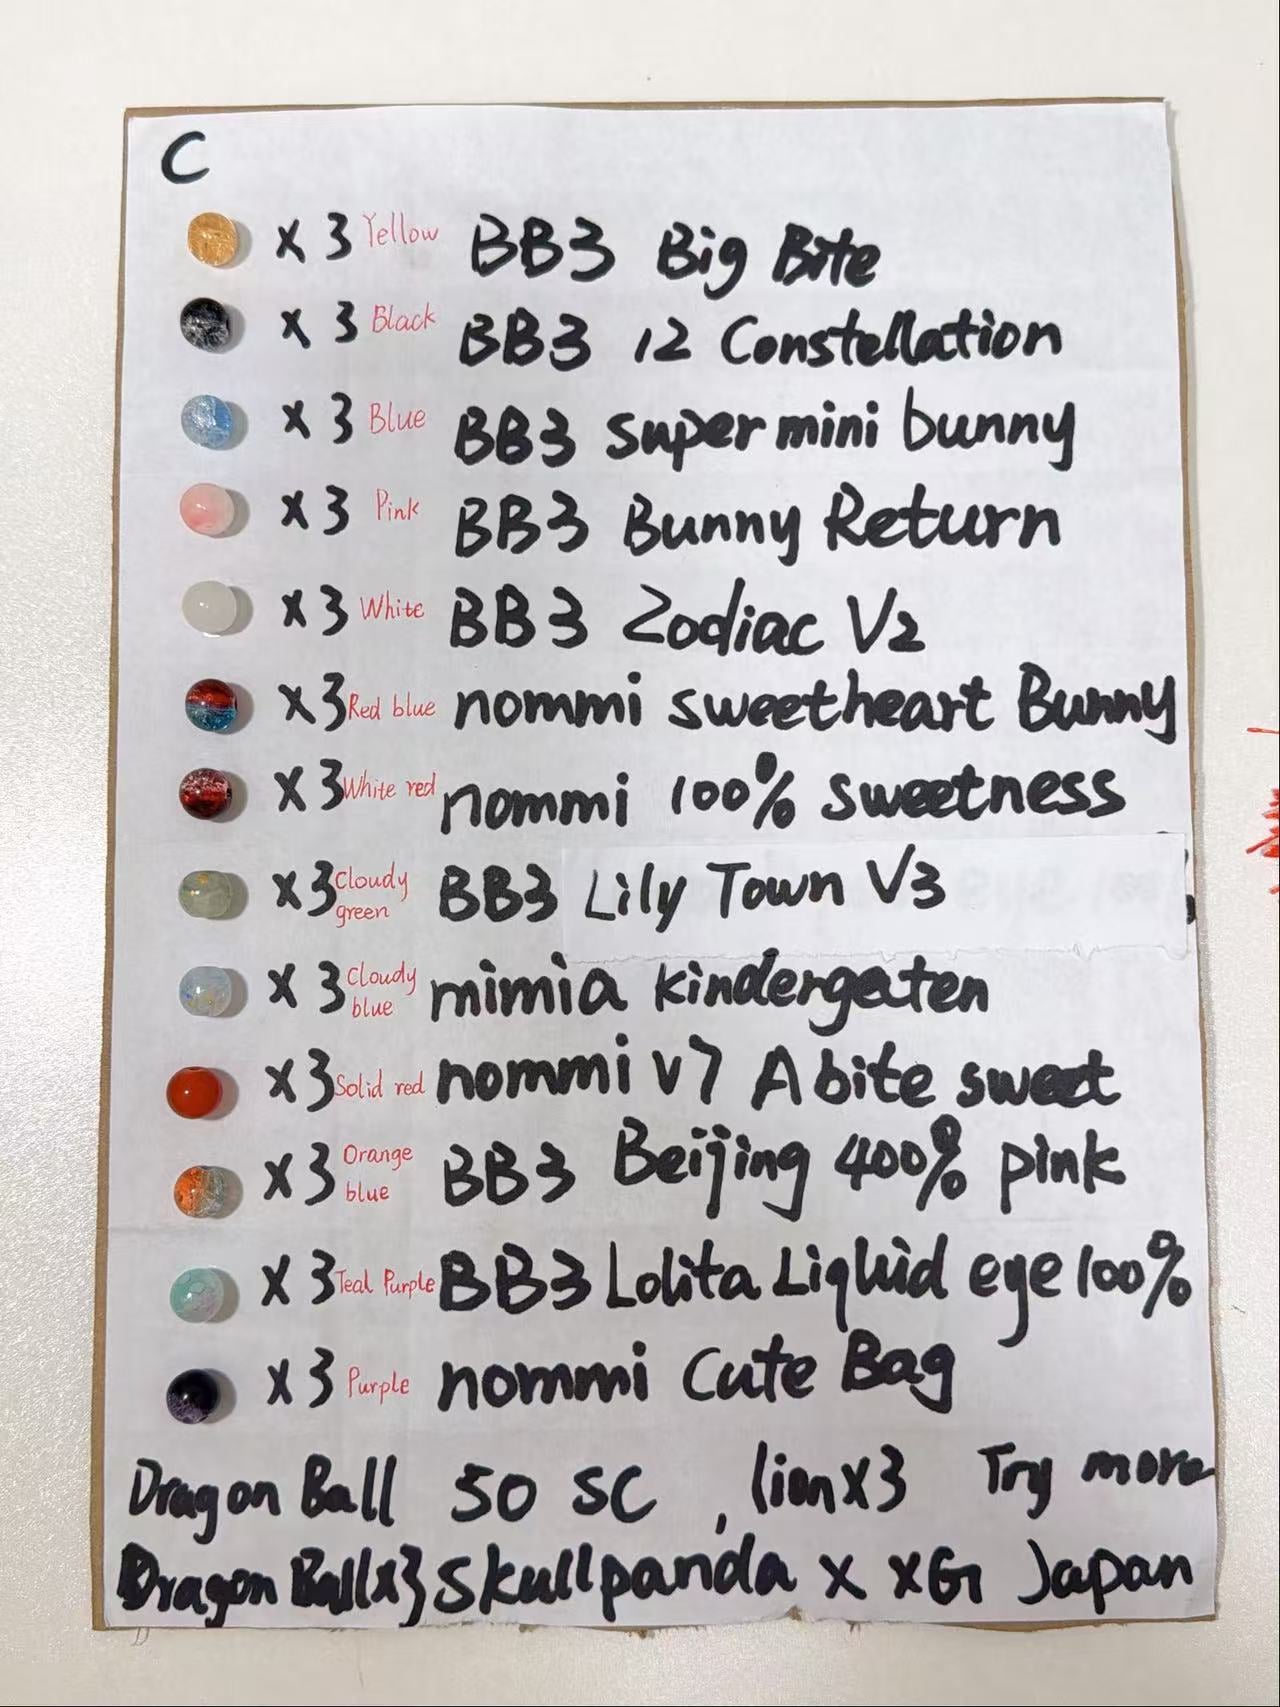 C
x 3 Yellow BB3 Big Bite
x 3 Black BB3 12 Constellation
x 3 Blue BB3 super mini bunny
x 3 Pink BB3 Bunny Return
x 3 White BB3 Zodiac V2
x 3 Red blue nommi sweetheart Bunny
x 3 White red nommi 100% sweetness
x 3 Cloudy green BB3 Lily Town V3
x 3 Cloudy blue mimia kindergaten
x 3 Solid red nommi v7 A bite sweet
x 3 Orange blue BB3 Beijing 400% pink
x 3 Teal Purple BB3 Lolita Liquid eye 100%
x 3 Purple nommi Cute Bag
Dragon Ball 50 SC , lion x3 Try more
Dragon Ball x3 skullpanda x xG Japan